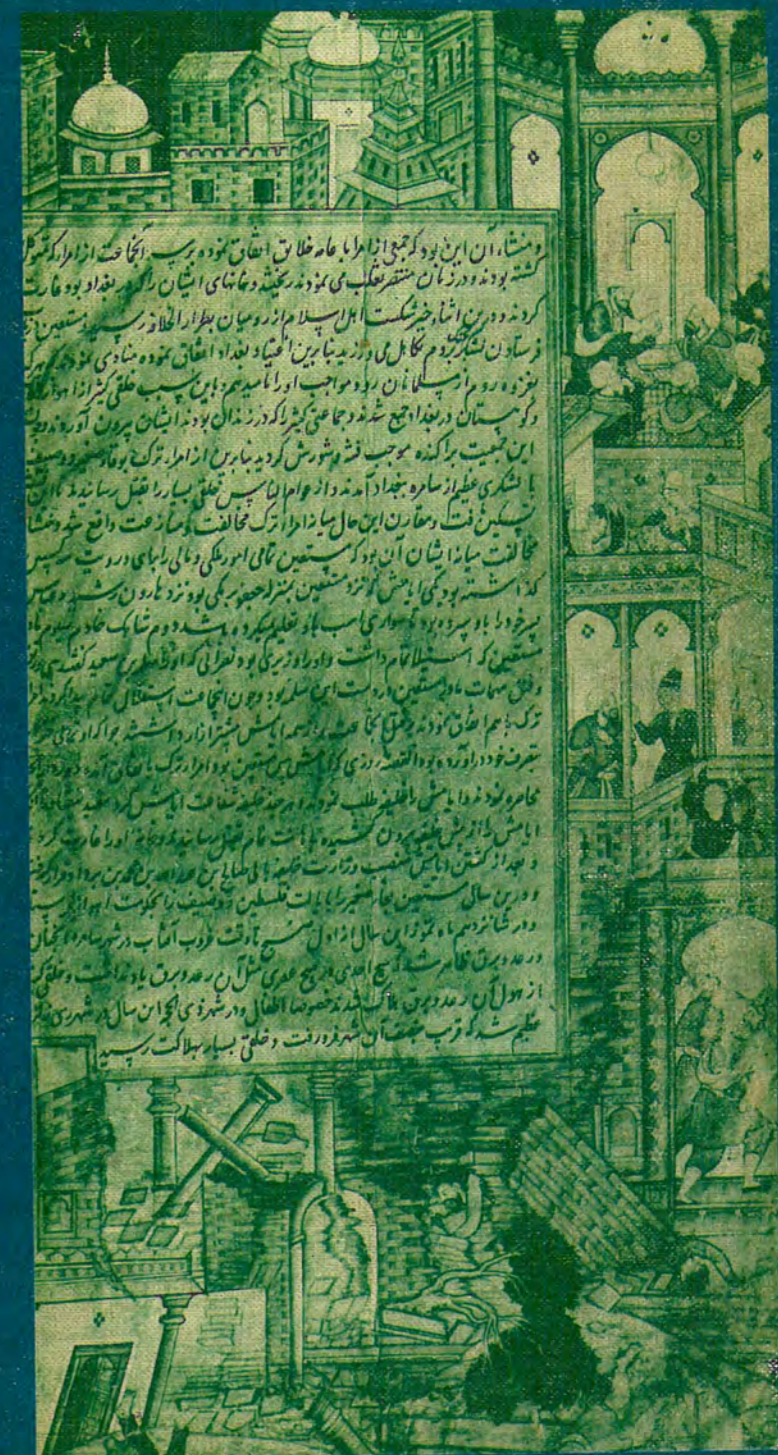 و منشاء آن این بود که جمعی از امرا با عامه خلایق اتفاق نموده بر انجماعت از امرا که
کشته بودند و در زمان منتصر تغلب می نمودند ریخته و خانهای ایشان را که در بغداد بود غارت
کردند و درین اثنا خبر شکست اهل اسلام از رومیان بدار الخلافه رسید مستعین
فرستادن لشکر بروم تکاهل می ورزید بنابرین اغنیاء بغداد اتفاق نموده منادی نمودند که هر که
بغزوه روم از مسلمانان رود مواجب او را ما میدهیم باین سبب خلقی کثیر از اهواز
و کوهستان در بغداد جمع شدند و جماعتی کثیر را که در زندان بودند ایشان بیرون آوردند
این جمعیت پراکنده موجب فتنه و شورش گردید بنابرین از امراء ترک بوقا و
با لشکری عظیم از سامره ببغداد آمدند و از عوام الناس خلقی بسیار را بقتل رسانیدند تا آن
تسکین یافت و مقارن این حال میانه امراء ترک مخالفت و منازعت واقع شد و منشاء
مخالفت میانه ایشان آن بود که مستعین تمامی امور ملکی و مالی را بای در رویت سه کس
گذاشته بود یکی اتامش که نزد مستعین بمنزله جعفر برمکی بود نزد هارون رشید و عباس
پسر خود را باو سپرده بود تا سواری اسب باو تعلیم میکرده باشد دوم شاهک خادم سیوم
مستعین که استیلا تمام داشت و او را وزیری بود نصرانی که او را سلمة بن سعید گفتندی
و فتق مهمات مادر مستعین در دست این سلمه بود و چون انجماعت استقلال تمام پیدا کردند
ترک با هم اتفاق نمودند بر قتل انجماعت و از همه اتامش بیشتر آزار داشتند چرا که او
بتصرف خود در آورده بود القصه روزی که اتامش پیش مستعین بود امراء ترک با
محاصره نمودند و اتامش را از خلیفه طلب نمودند هر چند خلیفه شفاعت اتامش کرد مفید نیفتاد
اتامش را از پیش خلیفه بیرون کشیده بقتل رسانیدند و خانه او را غارت کردند
و بعد از کشتن اتامش منصب وزارت خلیفه بابی صالح بن عبد الله بن محمد بن یزداد قرار گرفت
و درین سال مستعین بغاء صغیر را بایالت فلسطین و وصیف را بحکومت اهواز
و در شانزدهم ماه تموز این سال از اول صبح تا وقت غروب آفتاب در شهر سامره
و رعد و برق ظاهر شد که هیچ احدی در هیچ عهدی مثل آن رعد و برق یاد نداشت و خلقی کثیر
از هول آن رعد و برق هلاک شدند خصوصا اطفال و در شهر ذی الحجه این سال در شهر ری زلزله
عظیم شد که قریب بنصف آن شهر فرو رفت و خلقی بسیار بهلاکت رسید